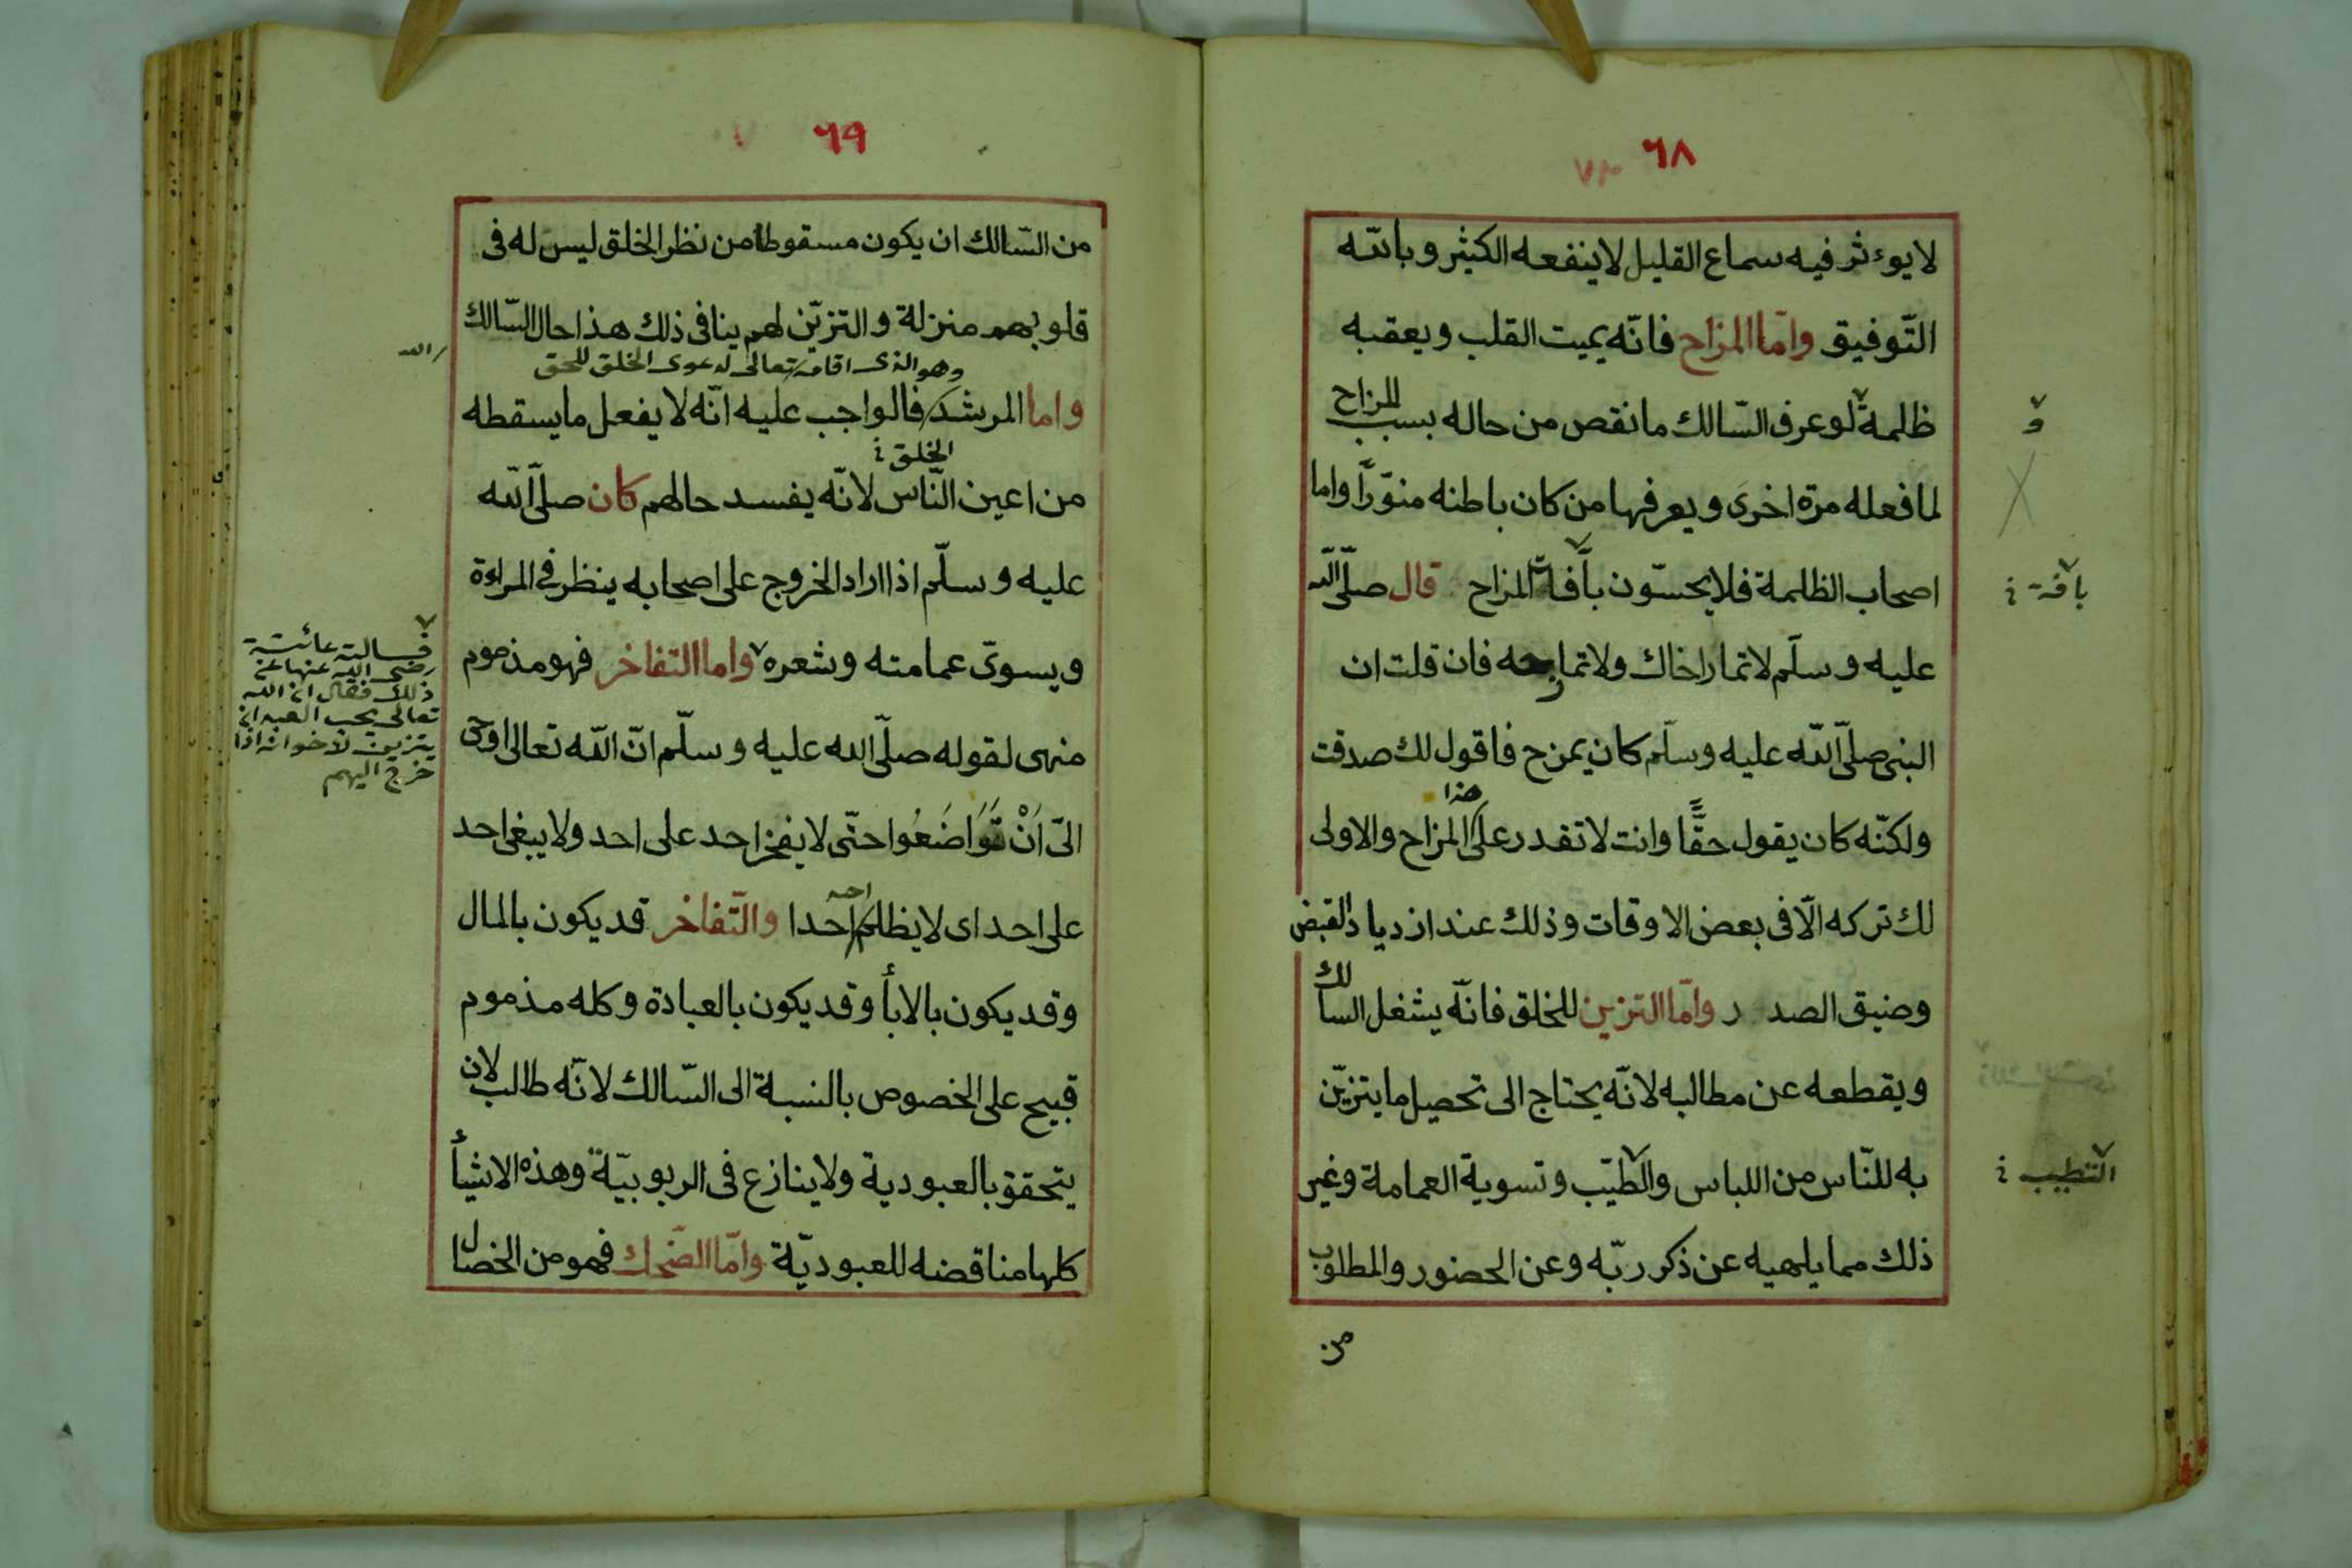 ٦٨
لايوءثر فيه سماع القليل لاينفعه الكثير وبالله
التّوفيق وامّا المزاح فانّه يميت القلب ويعقبه
ظلمة لوعرف السّالك مانقص من حاله بسبب المزاح
لمافعله مرّة اخرى ويعرفها من كان باطنه منوّرًا واما
اصحاب الظلمة فلايحسّون بآفة المزاح قال صلّى الله
عليه وسلّم لاتمار اخاك ولاتمازحه فان قلت ان
النبى صلّى الله عليه وسلّم كان يمزح فاقول لك صدقت
ولكنّه كان يقول حقًّا وانت لاتقدر على هذا المزاح والاولى
لك تركه الّا فى بعض الاوقات وذلك عند ازدياد القبض
وضيق الصدر وامّا التزين للخلق فانّه يشغل السالك
ويقطعه عن مطالبه لانّه يحتاج الى تحصيل مايتزيّن
به للنّاس من اللباس والطّيب وتسوية العمامة وغير
ذلك مما يلهيه عن ذكر ربّه وعن الحضور والمطلوب
من
و
بآفة
التطيب
٦٩
من السّالك ان يكون مسقوطا من نظر الخلق ليس له فى
قلوبهم منزلة والتزيّن لهم ينافى ذلك هذا حال السّالك
وهو الذى اقامه تعالى لدعوى الخلق للحق
الله
واما المرشد فالواجب عليه انّه لا يفعل مايسقطه
الخلق
من اعين النّاس لانّه يفسد حالهم كان صلّى الله
عليه وسلّم اذا اراد الخروج على اصحابه ينظر فى المراءة
ويسوّى عمامته وشعره واما التفاخر فهو مذموم
منهى لقوله صلّى الله عليه وسلّم انّ الله تعالى اوحى
الىّ اَنْ تَوَاضَعُوا حتّى لايفخر احد على احد ولايبغى احد
على احد اى لايظلم احد احدا والتّفاخر قديكون بالمال
وقديكون بالابأ وقديكون بالعبادة وكله مذموم
قبيح على الخصوص بالنسبة الى السّالك لانّه طالب لان
يتحقق بالعبودية ولاينازع فى الربوبيّة وهذه الاشيأ
كلها مناقضه للعبوديّة وامّا الضّحك فهو من الخصال
فسالته عائشة
رضى الله عنها عن
ذلك فقال ان الله
تعالى يحب العبد ان
يتزين لاخوانه اذا
خرج اليهم